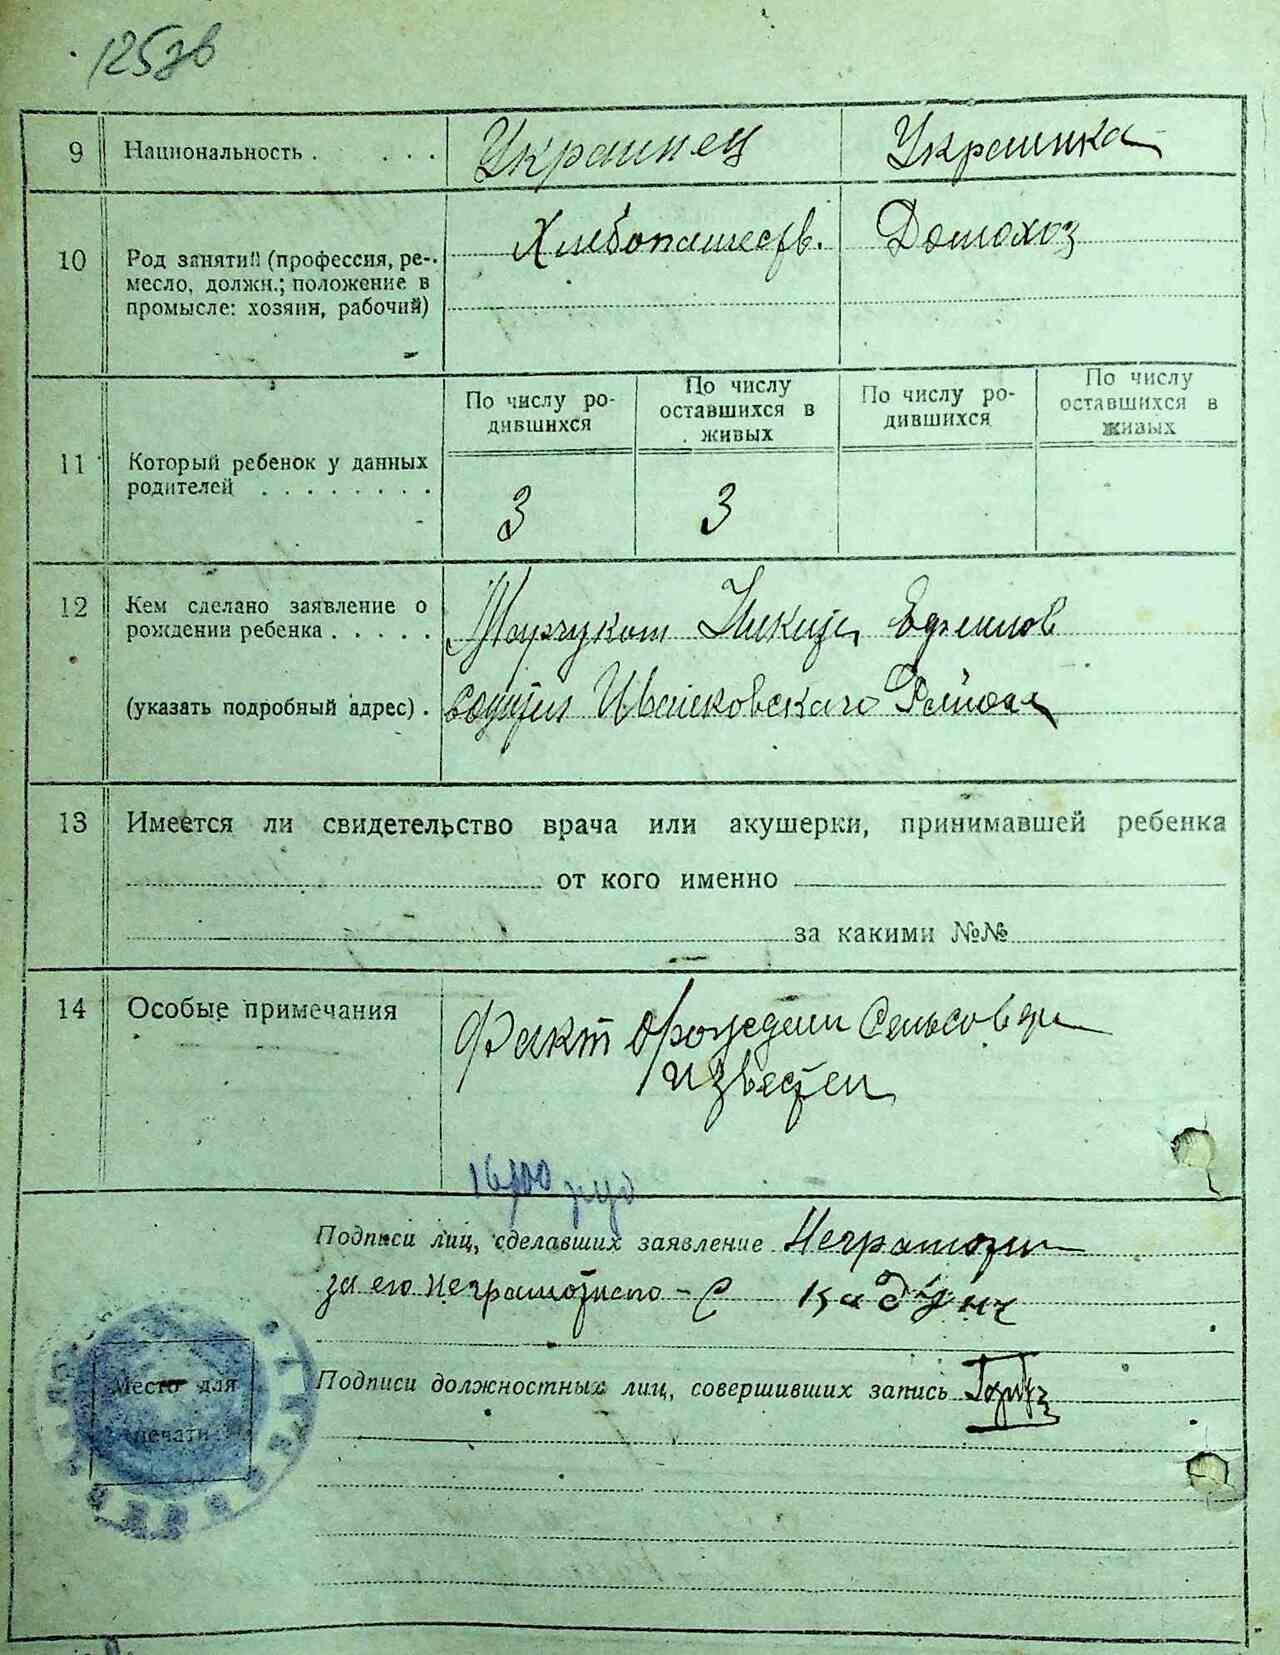 125зв
9 Национальность . . . . . Украинец Украинка
10 Род занятий (профессия, ре-
месло, должн.; положение в
промысле: хозяин, рабочий)
Хлебопашеств. Домохоз
11 Который ребенок у данных
родителей . . . . . . . .
По числу ро-
дившихся
По числу
оставшихся в
живых
По числу ро-
дившихся
По числу
оставшихся в
живых
3 3
12 Кем сделано заявление о
рождении ребенка . . . . .
(указать подробный адрес) .
Марчуком Никита Ефимов
Ивашковского Района
13 Имеется ли свидетельство врача или акушерки, принимавшей ребенка
от кого именно
за какими №№
14 Особые примечания
Факт о рождении Сельсовету
известен
Подписи лиц, сделавших заявление Неграмотн
за его неграмотного - С
Подписи должностных лиц, совершивших запись
Место для
печати